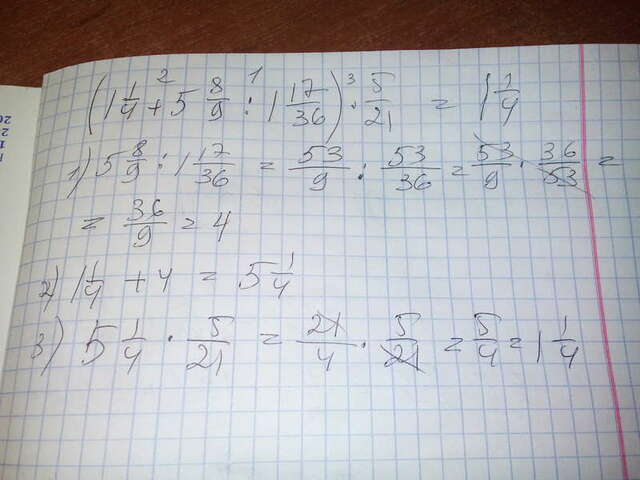 (1 1/4 +² 5 8/9 :¹ 1 17/36) ·³ 5/21 = 1 1/4
1) 5 8/9 : 1 17/36 = 53/9 : 53/36 = 53/9 · 36/53 =
= 36/9 = 4
2) 1 1/4 + 4 = 5 1/4
3) 5 1/4 · 5/21 = 21/4 · 5/21 = 5/4 = 1 1/4